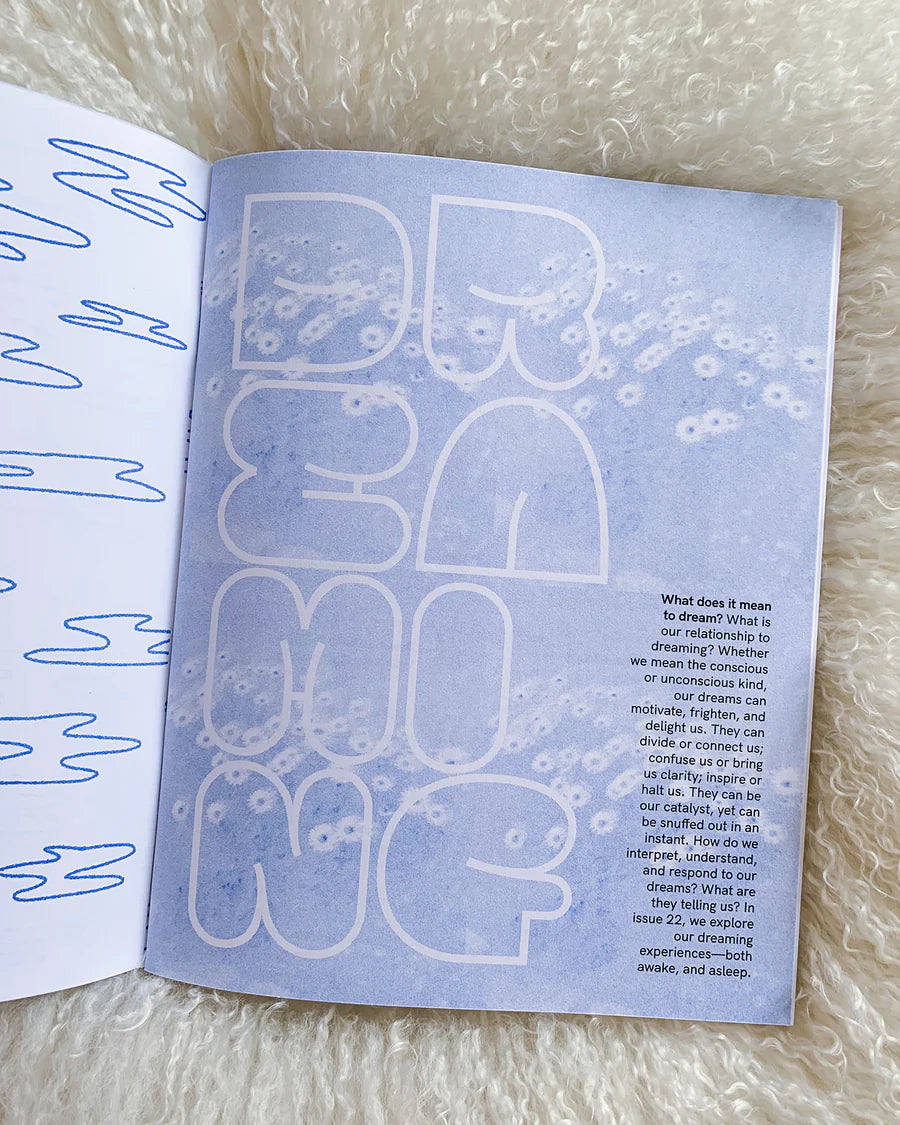 DR
EA
MI
NG
What does it mean
to dream? What is
our relationship to
dreaming? Whether
we mean the conscious
or unconscious kind,
our dreams can
motivate, frighten, and
delight us. They can
divide or connect us;
confuse us or bring
us clarity; inspire or
halt us. They can be
our catalyst, yet can
be snuffed out in an
instant. How do we
interpret, understand,
and respond to our
dreams? What are
they telling us? In
issue 22, we explore
our dreaming
experiences—both
awake, and asleep.